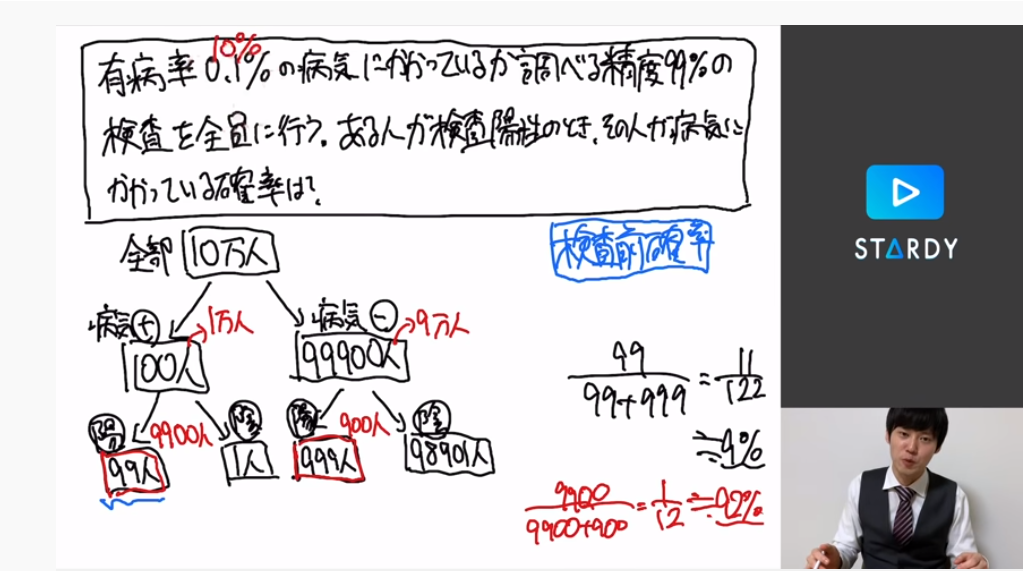 10%
有病率0.1%の病気にかかっているか調べる精度99%の
検査を全員に行う。ある人が検査陽性のとき、その人が病気に
かかっている確率は?
全部 10万人
検査前確率
病気+ 1万人 病気- 9万人
100人 99900人
陽 9900人 陰 陽 900人 陰
99人 1人 999人 98901人
99/99+999 = 11/122
≒9%
9900/9900+900 = 1/12 ≒92%
STARDY